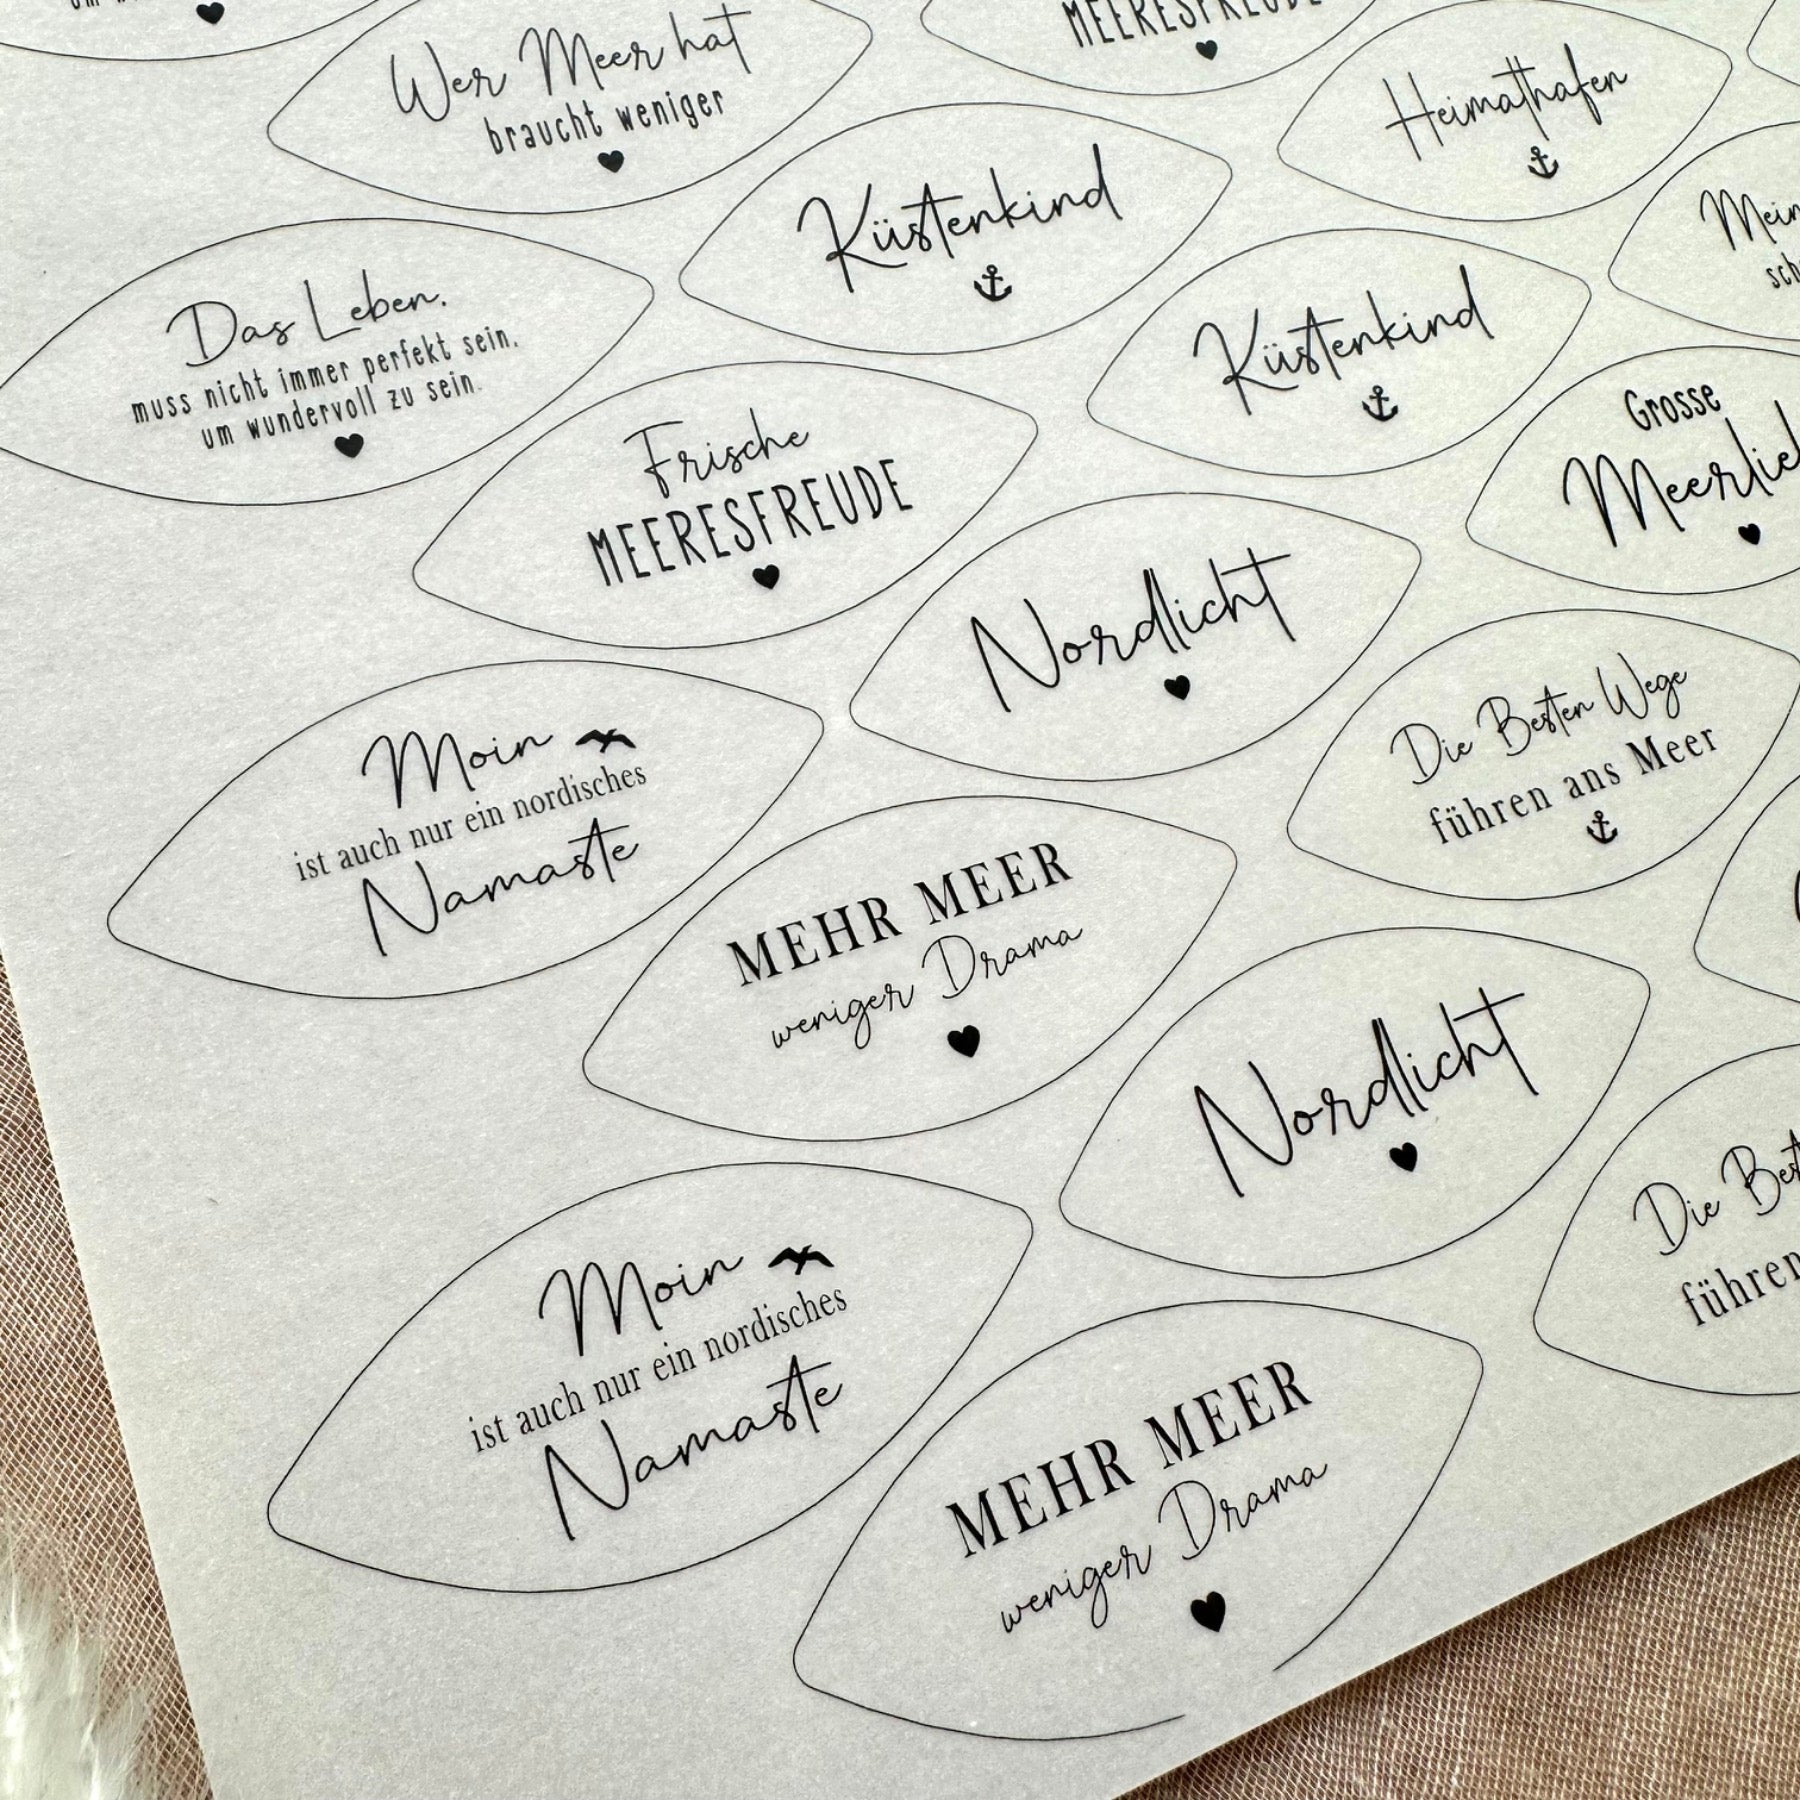 Wer Meer hat
braucht weniger
MEERESFREUDE
Heimathafen
Küstenkind
Das Leben.
muss nicht immer perfekt sein,
um wundervoll zu sein.
Küstenkind
Frische
MEERESFREUDE
Grosse
Nordlicht
Moin
ist auch nur ein nordisches
Namaste
Die Besten Wege
führen ans Meer
MEHR MEER
weniger Drama
Nordlicht
Die
führen
Moin
ist auch nur ein nordisches
Namaste
MEHR MEER
weniger Drama